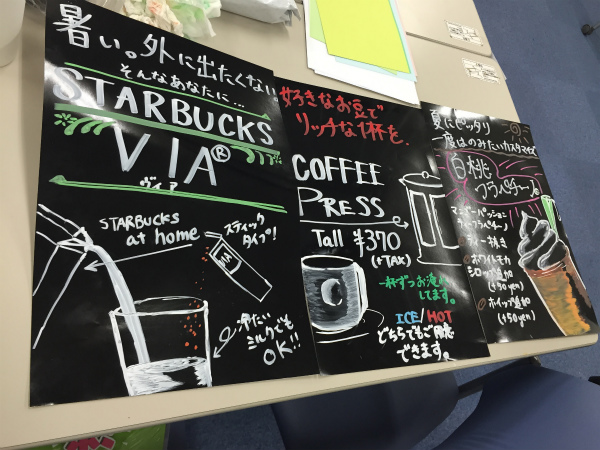 暑い。外に出たくない。
そんなあなたに…
STARBUCKS
VIA®
ヴィア
STARBUCKS
at home
スティック
タイプ!
冷たい
ミルクでも
OK!!
好きなお豆で
リッチな1杯を.
COFFEE
PRESS
Tall ¥370
(+TAX)
一杯ずつお淹れ
してます。
ICE/HOT
どちらでもご用意
できます。
夏にピッタリ
一度はのみたいカスタマイズ
白桃
フラペチーノ®
マンゴーパッション
ティーフラペチーノ
ティー抜き
ホワイトモカ
シロップ追加
(+50yen)
ホイップ追加
(+50yen)